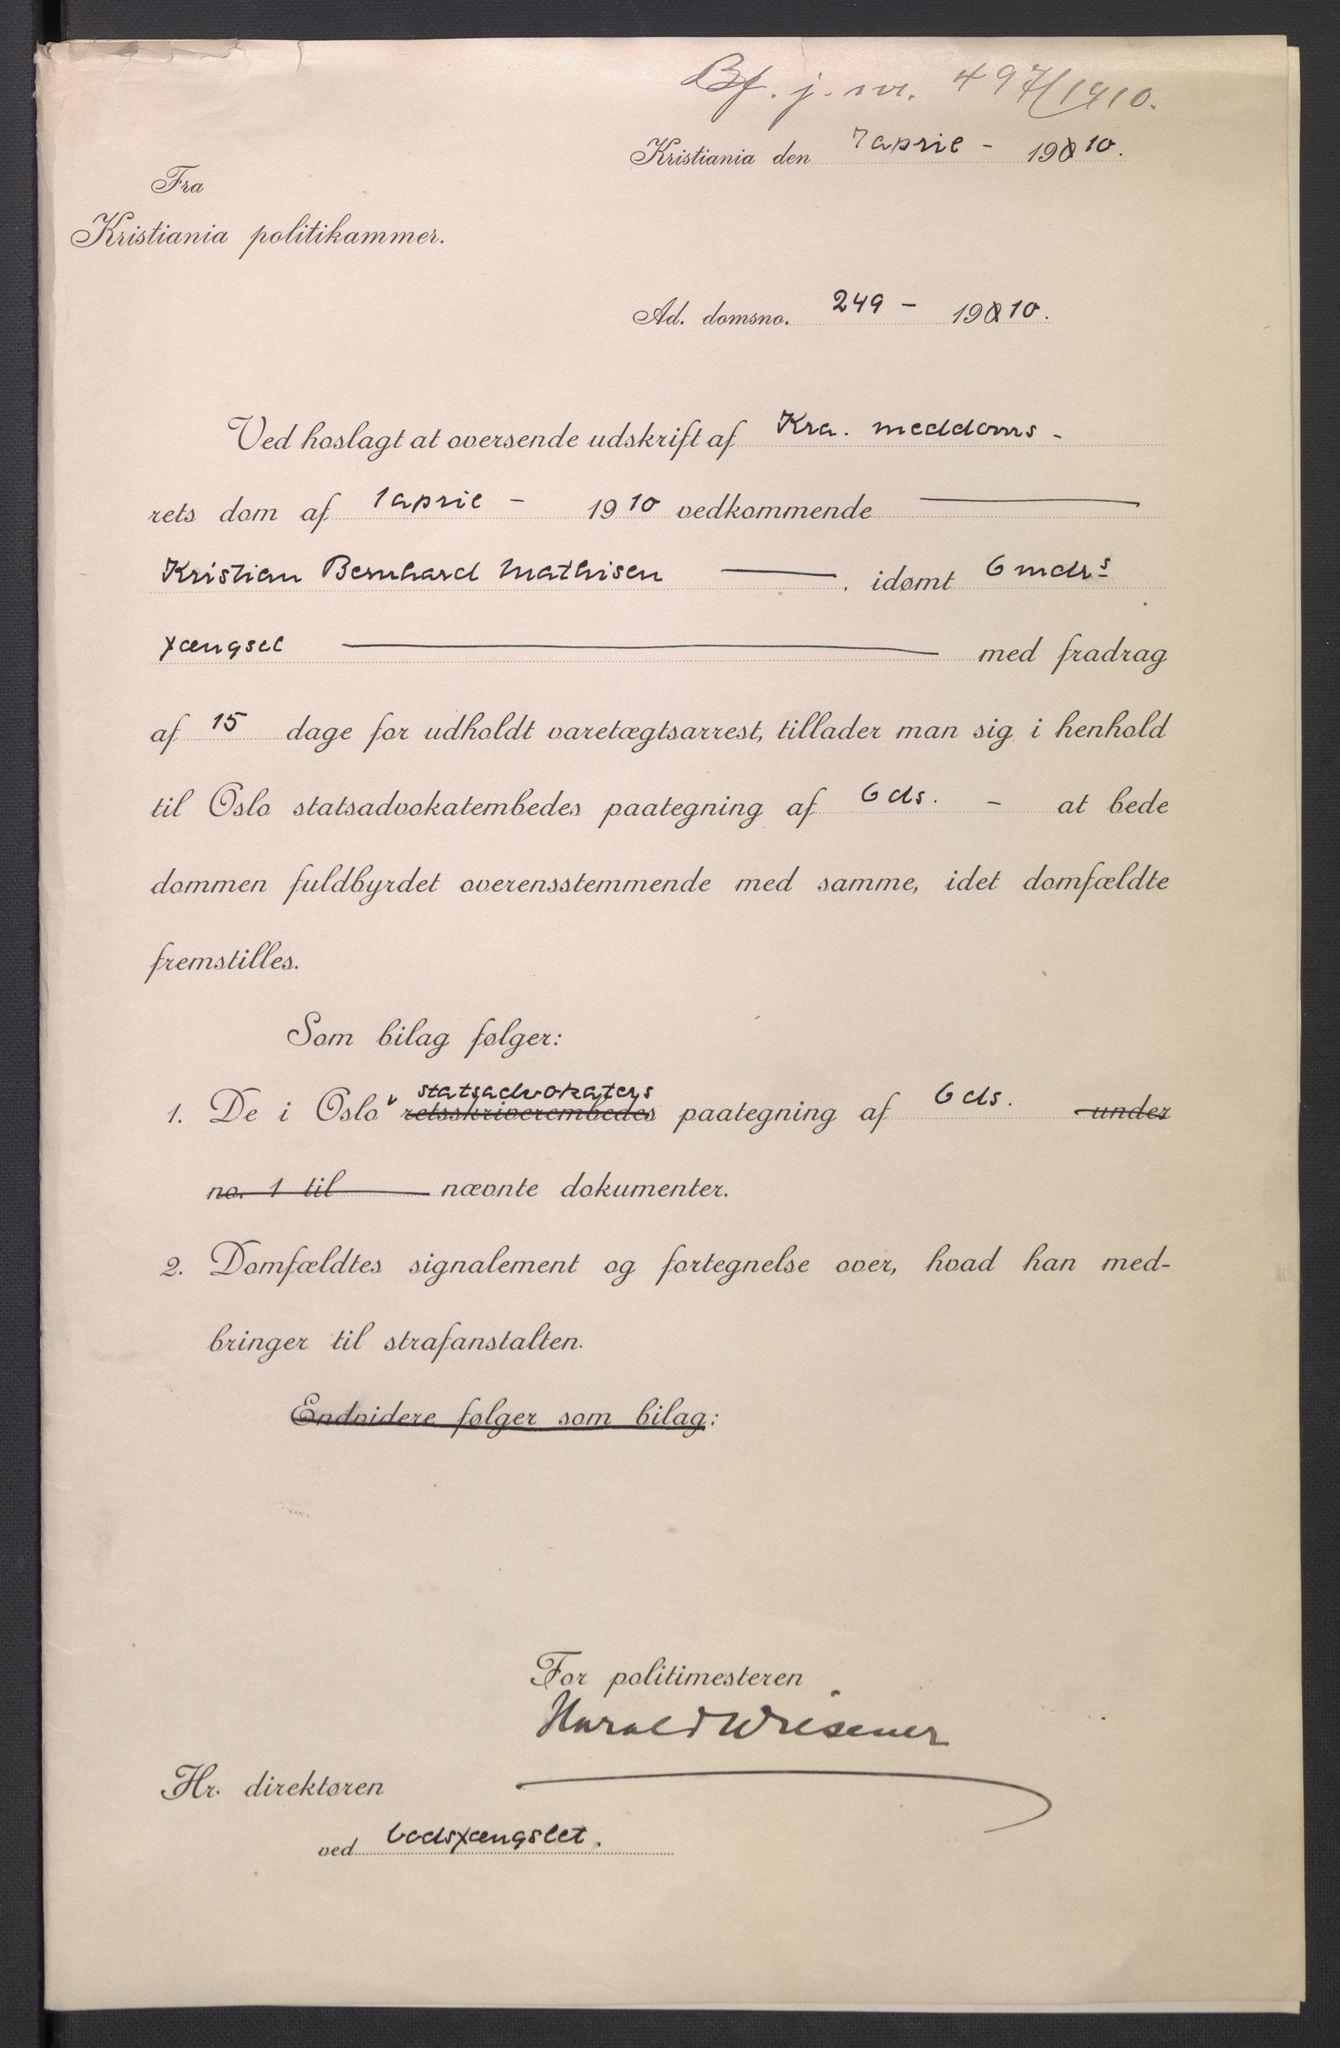 Bf. j. nr. 497/1910.
Kristiania den 7 april - 1910.
Fra
Kristiania politikammer.
Ad. domsno. 249 - 1910.
Ved hoslagt at oversende udskrift af Kra. meddoms-
rets dom af 1 april - 1910 vedkommende
Kristian Bernhard Mathisen . idømt 6 mdrs
fængsel med fradrag
af 15 dage for udholdt varetægtsarrest, tillader man sig i henhold
til Oslo statsadvokatembedes paategning af 6 ds. - at bede
dommen fuldbyrdet overensstemmende med samme, idet domfældte
fremstilles.
Som bilag følger:
statsadvokaters
1. De i Oslo retsskriverembedes paategning af 6 ds. under
no. 1 til nævnte dokumenter.
2. Domfældtes signalement og fortegnelse over, hvad han med-
bringer til strafanstalten.
Endvidere følger som bilag:
For politimesteren
Harald
Hr. direktøren
ved bodsfængslet.